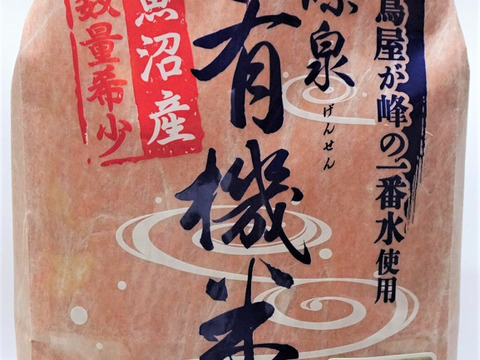 蔦屋が峰の一番水使用
源泉
げんせん
有機米
魚沼産
数量希少